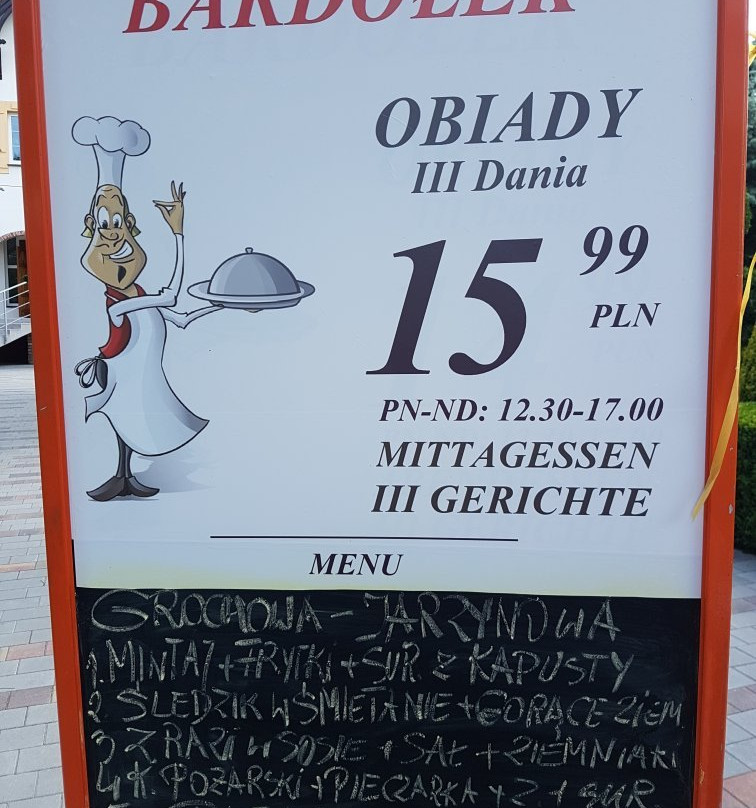 BARDOLEK
OBIADY
III Dania
15 99
PLN
PN-ND: 12.30-17.00
MITTAGESSEN
III GERICHTE
MENU
GROCHOWA - JARZYNOWA
1. MINTAJ + FRYTKI + SUR. Z KAPUSTY
2 ŚLEDZIK W ŚMIETANIE + GORĄCE ZIEM
3 ZRAZI W SOSIE + SAŁ + ZIEMNIAKI
4 K. POŻARSKI + PIECZARKA + Z + SUR